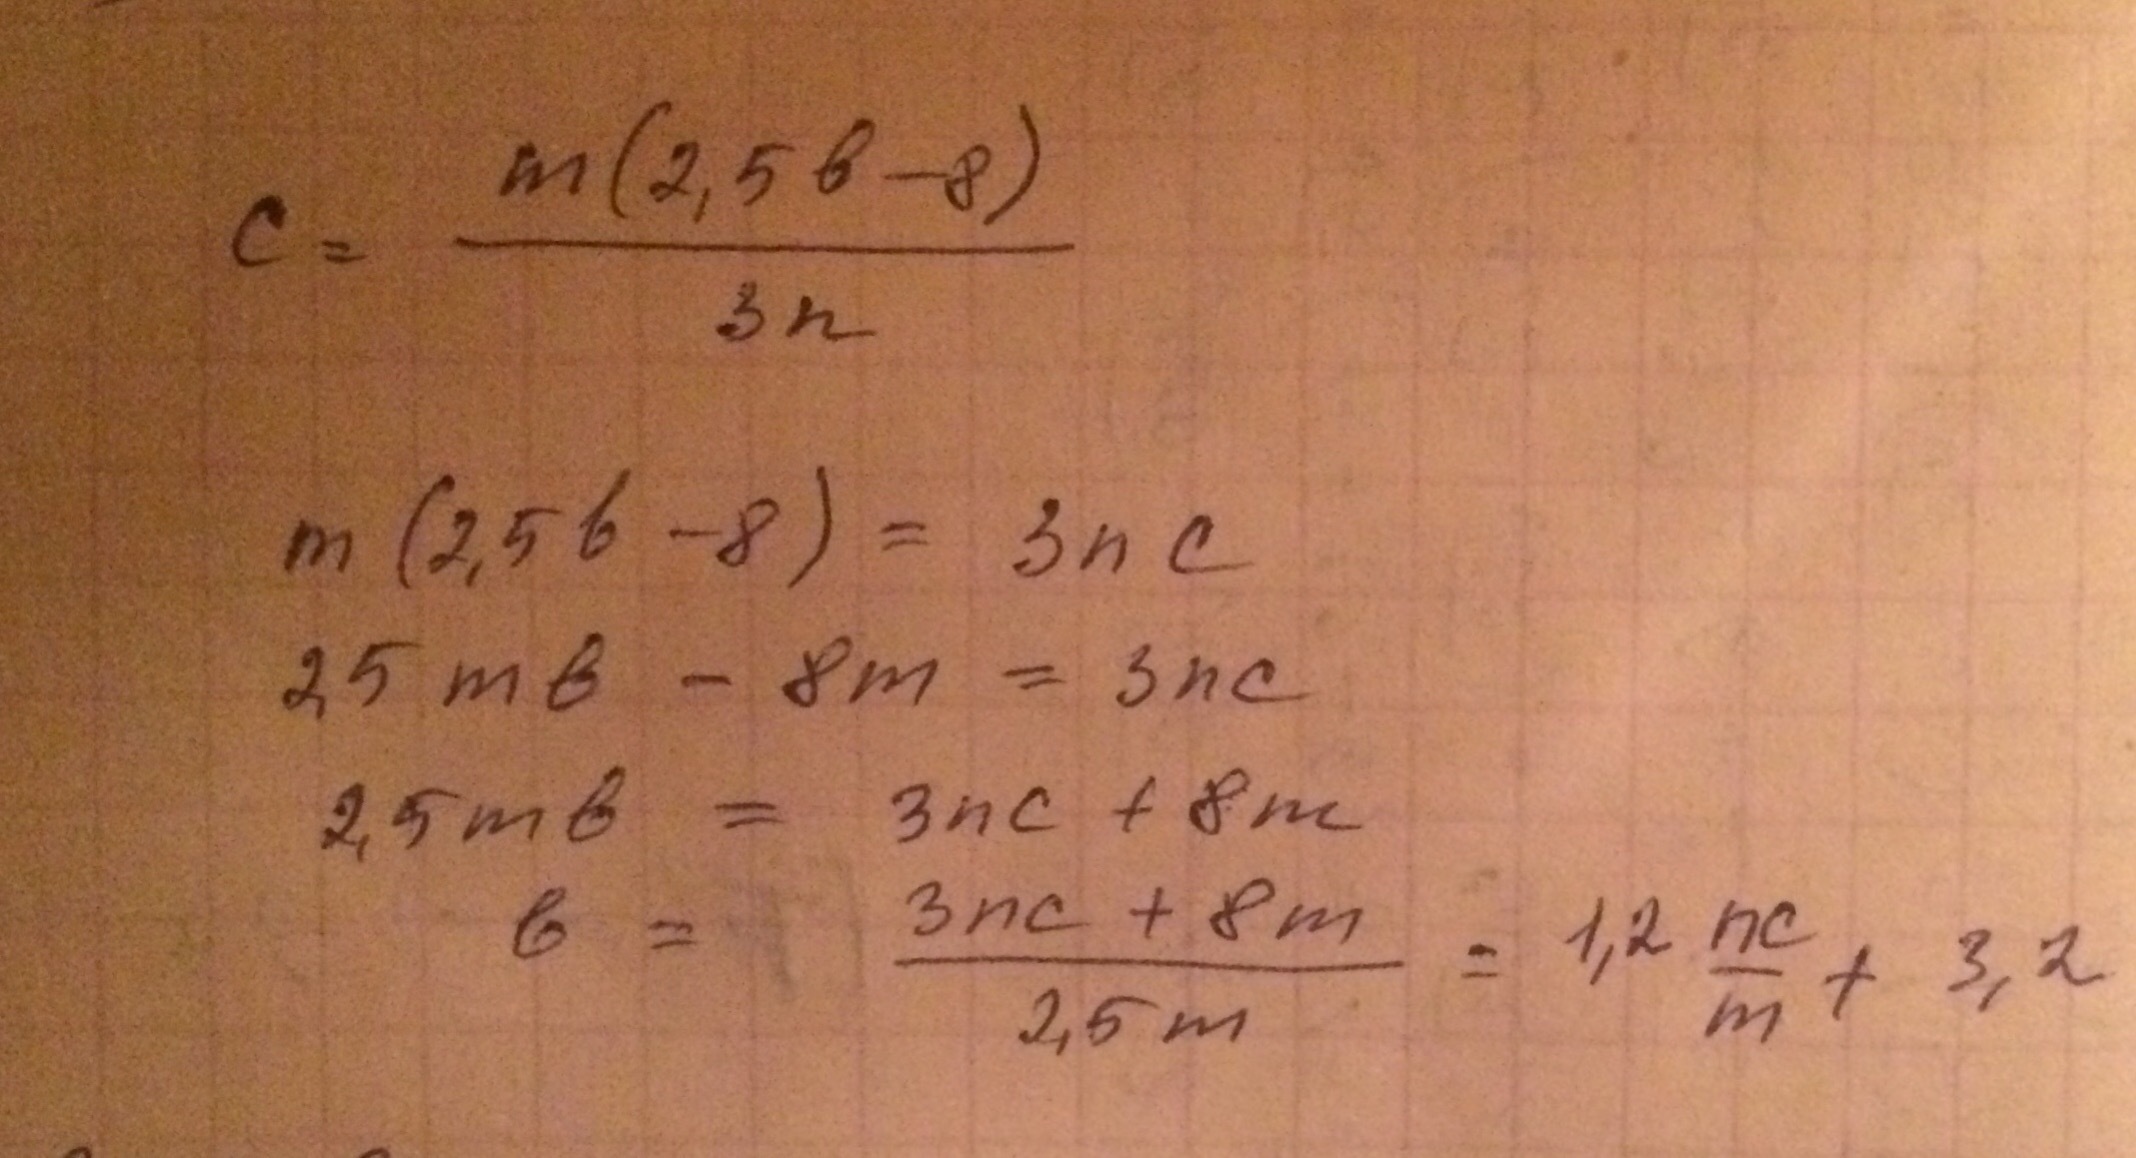 c = m(2,5b-8) / 3n
m(2,5b-8) = 3nc
2,5mb - 8m = 3nc
2,5mb = 3nc + 8m
b = (3nc + 8m) / 2,5m = 1,2 nc/m + 3,2